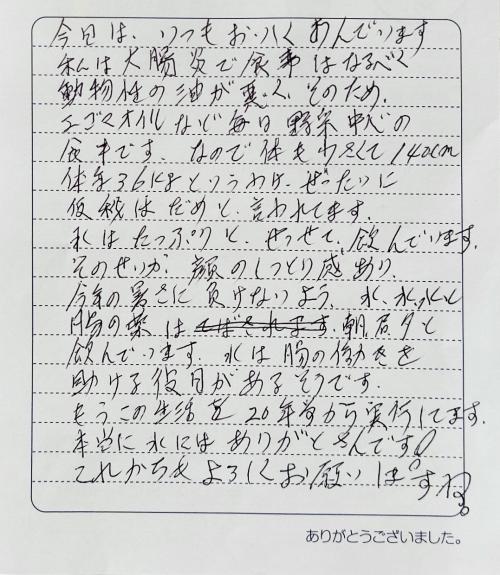 今日は、いつもおいしくあんでいます
私は大腸炎で食事はなるべく
動物性の油が悪く、そのため、
エゴマオイルなど毎日野菜中心の
食事です。なので体も小さくて140cm
体重36kgというわけ、ぜったいに
仮税はだめと、言われてます。
水はたっぷりと、せっせて、飲んでいます。
そのせいか、顔のしっとり感あり、
今年の暑さに負けないよう、水、水、水と
腸の薬は 朝昼夕と
飲んでいます。水は腸の働きを
助ける役目があるそうです。
もうこの生活を20年前から実行してます。
本当に水にはありがとさんです!
これからもよろしくお願いしますね。
ありがとうございました。